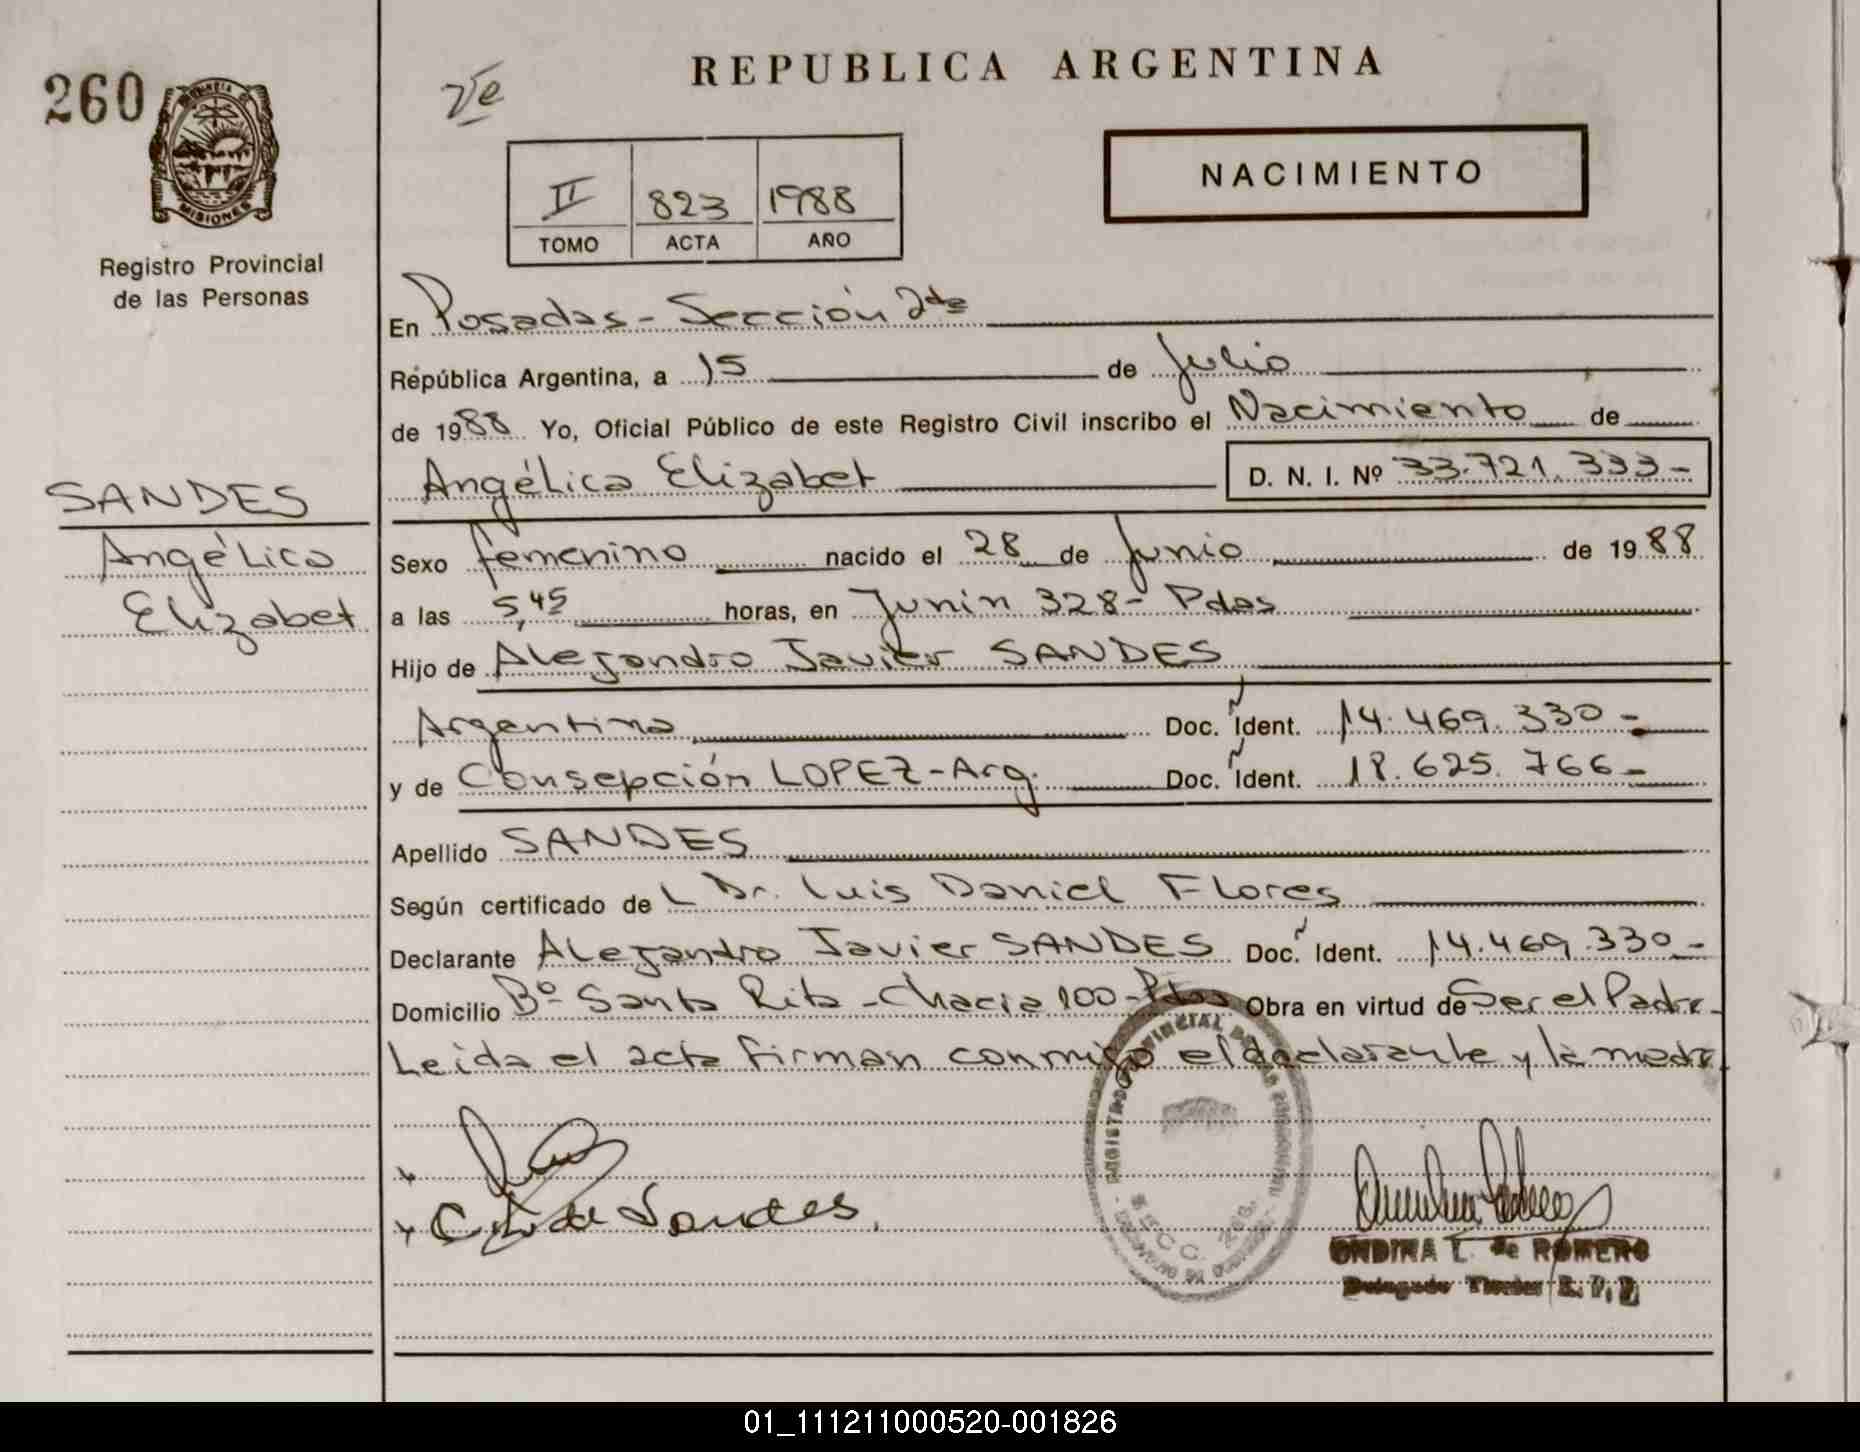 260
Ve
REPUBLICA ARGENTINA
NACIMIENTO
II 823 1988
TOMO ACTA AÑO
MISIONES
Registro Provincial
de las Personas
En Posadas - Sección 2da
República Argentina, a 15 de Julio
de 1988 Yo, Oficial Público de este Registro Civil inscribo el Nacimiento de
Angélica Elizabet D. N. I. Nº 33.721.333-
SANDES
Angélica
Elizabet
Sexo femenino nacido el 28 de Junio de 1988
a las 5,45 horas, en Junin 328- Pdas
Hijo de Alejandro Javier SANDES
Argentino Doc. Ident. 14.469.330-
y de Consepción LOPEZ-Arg. Doc. Ident. 18.625.766-
Apellido SANDES
Según certificado de L Dr. Luis Daniel Flores
Declarante Alejandro Javier SANDES Doc. Ident. 14.469.330-
Domicilio Bº Santa Rita - Chacra 100-Pdas Obra en virtud de Ser el Padre
Leida el acta firman conmigo el declarante y la madre
de Sandes
ONDINA L. de ROMERO
01_111211000520-001826